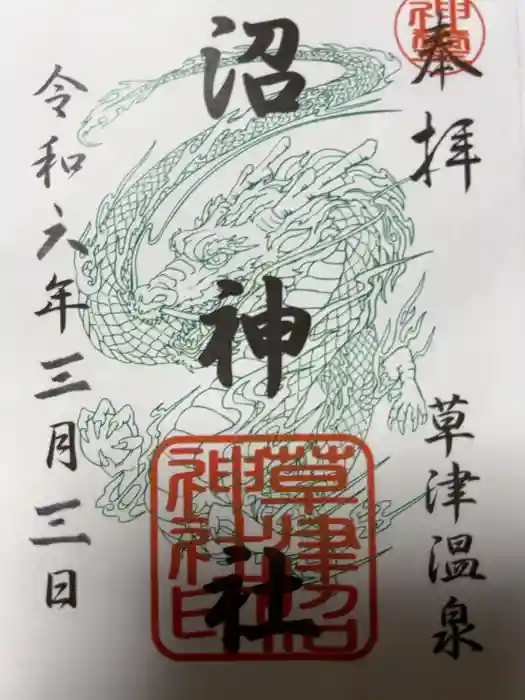 奉拝
草津温泉
沼神社
草津沼
神社印
令和六年三月三日